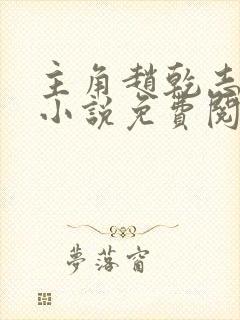 主角趙乾志
小說免費閱
夢落窗